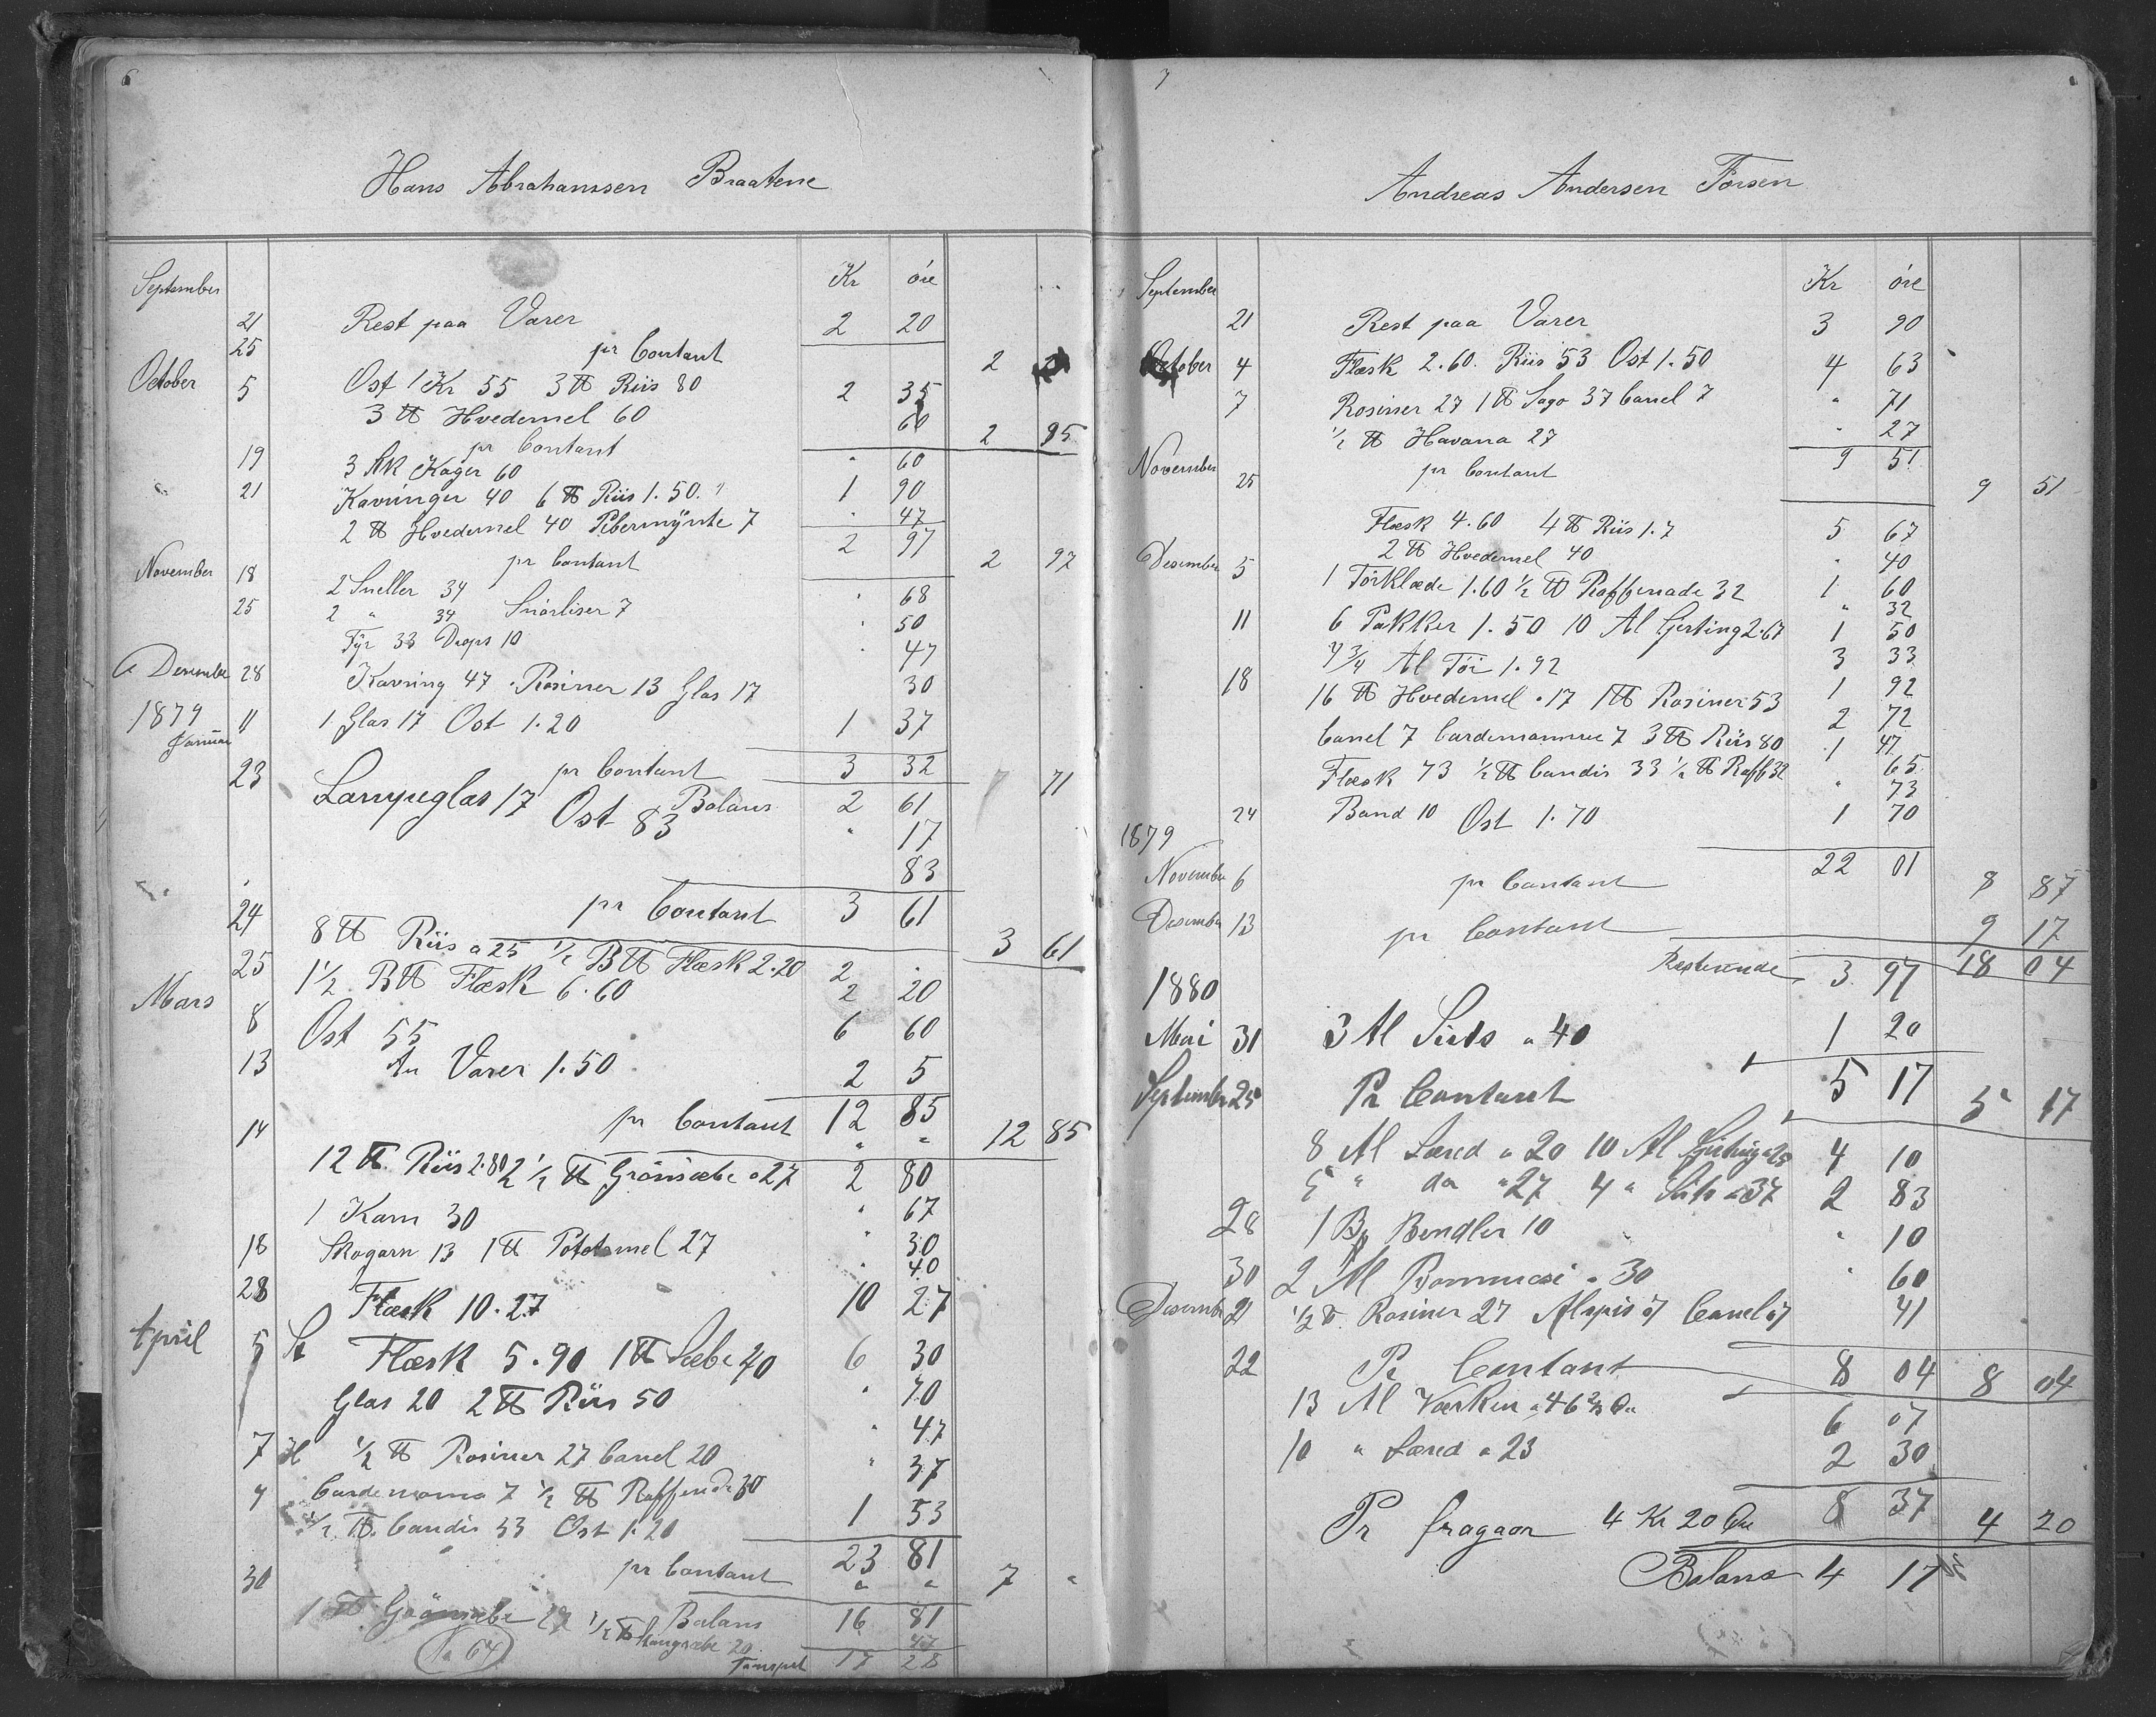 6
Hans Abrahamssen Braatene
Kr øre
September
21 Rest paa Varer 2 20
25 pr Contant 2
October 5 Ost 1 Kr 55 3 ℔ Riis 80 2 35
3 ℔ Hvedemel 60 60
pr Contant 2 95
19 3 Stk Kager 60 " 60
21 Kavringer 40 6 ℔ Riis 1.50 1 90
2 ℔ Hvedemel 40 Pebermynte 7 " 47
2 97
pr Contant 2 97
November 18 2 Sneller 34 " 68
25 2 " 34 Snørliser 7 " 50
Fyr 33 Drops 10 " 47
Desember 28 Kavring 47 Rosiner 13 Glas 17 30
1879 Januar 11 1 Glas 17 Ost 1.20 1 37
pr Contant 3 32
71
23 Balans 2 61
Lampeglas 17 " 17
Ost 83 83
24 pr Contant 3 61
3 61
25 8 ℔ Riis a 25 1/2 B℔ Flæsk 2.20 2 "
2 20
Mars 8 1 1/2 B℔ Flæsk 6.60 6 60
13 Ost 55
An Varer 1.50 2 5
14 pr Contant 12 85 12 85
12 ℔ Riis 2.80 2 1/2 ℔ Grønsæbe a 27 2 80
" 67
1 Kam 30 " 30
18 Skogarn 13 1 ℔ Potetemel 27 " 40
28 Flæsk 10.27 10 27
April 5 Flæsk 5.90 1 ℔ Sæbe 40 6 30
Glas 20 2 ℔ Riis 50 " 70
7 1/2 ℔ Rosiner 27 Canel 20 " 47
Cardemoma 7 1/2 ℔ Raffenade 30 " 37
1/2 ℔ Candis 33 Ost 1.20 1 53
23 81
30 pr Contant 7 "
Balans 16 81
1 ℔ Grønsæbe 27 1/2 ℔ Stangsæbe 20 47
Transport 17 28
No 64
7
Andreas Andersen Forsen
Kr øre
September
21 Rest paa Varer 3 90
October 4 Flæsk 2.60. Riis 53 Ost 1.50 4 63
7 Rosiner 27 1 ℔ Sago 37 Canel 7 " 71
1/2 ℔ Havana 27 " 27
9 51
November 25 pr Contant 9 51
Flæsk 4.60 4 ℔ Riis 1.7 5 67
2 ℔ Hvedemel 40 " 40
Desember 5 1 Törklæde 1.60 1/2 ℔ Raffenade 32 1 60
" 32
11 6 Pakker 1.50 10 Al Girting 2.67 1 50
7 3/4 Al Töi 1.92 3 33
18 16 ℔ Hvedemel a 17 1 ℔ Rosiner 53 1 92
2 72
Canel 7 Cardemomme 7 3 ℔ Riis 80 1 47
Flæsk 73 1/2 ℔ Candis 33 1/2 ℔ Raff 32 65
" 73
24 Band 10 Ost 1.70 1 70
22 01
1879
November 6 pr Contant 8 87
Desember 13 pr Contant 9 17
Resterende 3 97 18 04
1880
Mai 31 3 Al Sirts a 40 1 20
September 25 Pr Contant 5 17 5 17
8 Al Læred a 20 10 Al Girting a 25 4 10
5 " do a 27 4 " Sirts a 37 2 83
28 1 Bendler 10 " 10
30 2 Al Bommesi a 30 " 60
Desember 21 1/2 ℔ Rosiner 27 Alspis 07 Canel 07 41
22 Pr Contant 8 04 8 04
13 Al Værken a 46 2/3 Ør 6 07
10 " Læred a 23 2 30
8 37
Pr fragaar 4 Kr 20 Øre 4 20
Balans 4 17